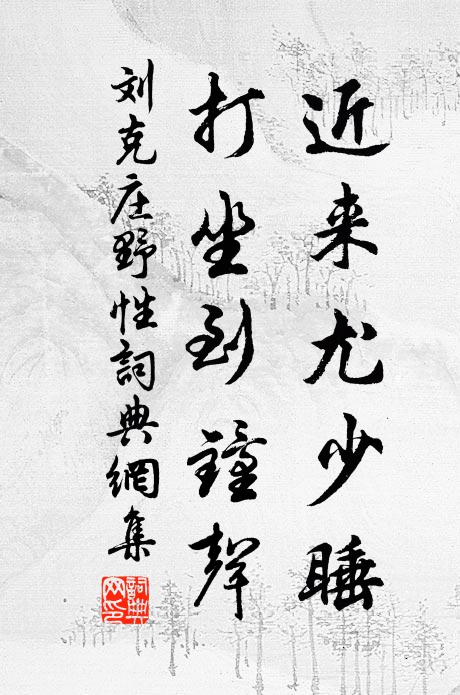 近来尤少睡
打坐到鐘聲
刘克庄野性詞典網集
詞典网印